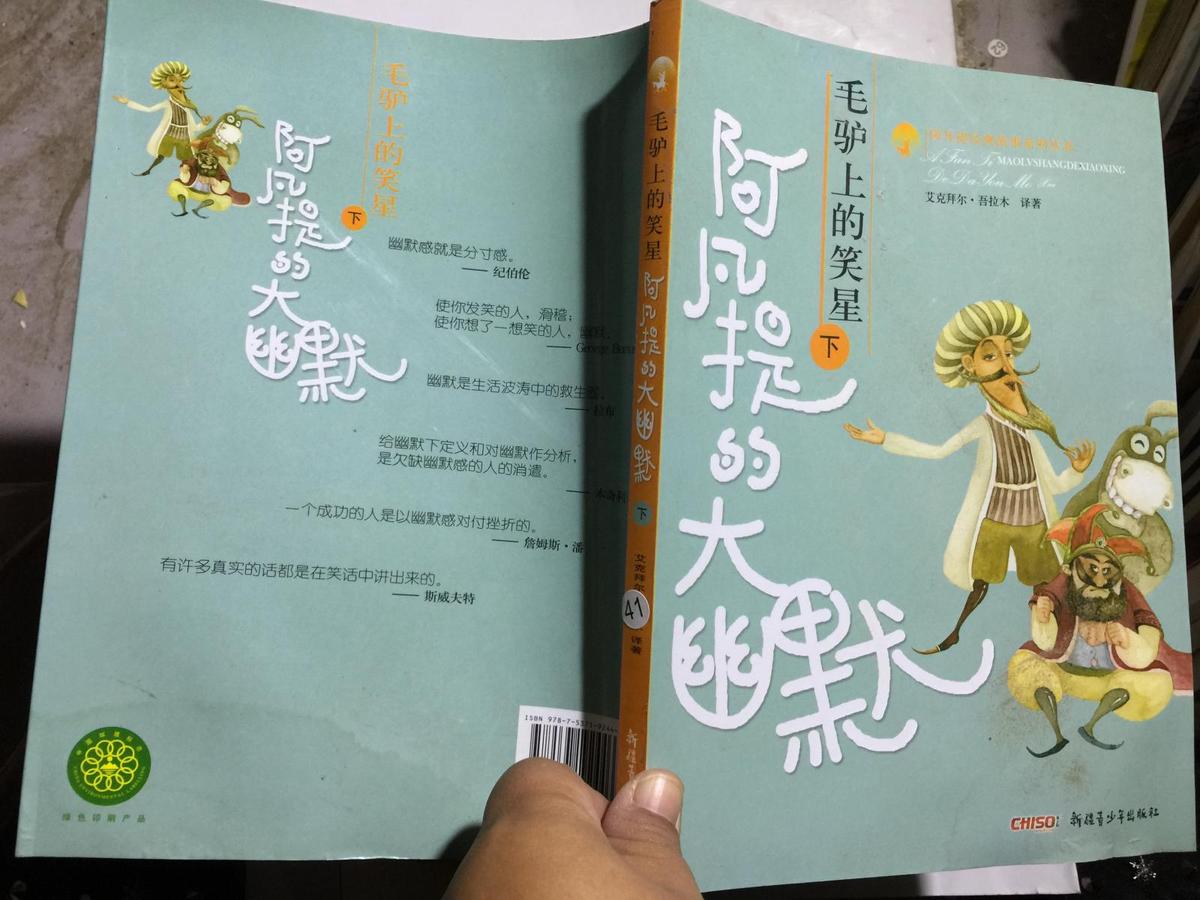 毛驴上的笑星
阿凡提的大幽默
下
幽默感就是分寸感。
—— 纪伯伦
使你发笑的人，滑稽；
使你想了一想笑的人，幽默。
—— George
幽默是生活波涛中的救生圈。
—— 拉布
给幽默下定义和对幽默作分析，
是欠缺幽默感的人的消遣。
一个成功的人是以幽默感对付挫折的。
—— 詹姆斯·潘
有许多真实的话都是在笑话中讲出来的。
—— 斯威夫特
绿色印刷产品
ISBN 978-7-5371-
毛驴上的笑星
阿凡提的大幽默
下
艾克拜尔
41
译著
新疆
毛驴上的笑星
下
阿凡提的大幽默
A Fan Ti MAOLVSHANGDEXIAOXING
De Da You Mo
艾克拜尔·吾拉木 译著
CHISO
新疆青少年出版社